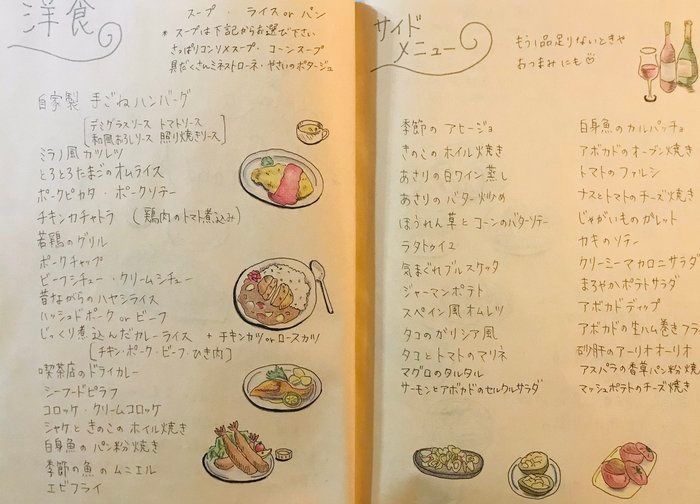 洋食
スープ ・ ライス or パン
* スープは下記からお選び下さい
さっぱりコンソメスープ ・ コーンスープ
具だくさんミネストローネ ・ やさいのポタージュ
自家製 手ごねハンバーグ
[デミグラスソース トマトソース
和風おろしソース 照り焼きソース]
ミラノ風カツレツ
とろとろたまごのオムライス
ポークピカタ ・ ポークソテー
チキンカチャトラ (鶏肉のトマト煮込み)
若鶏のグリル
ポークチャップ
ビーフシチュー ・ クリームシチュー
昔ながらのハヤシライス
ハッシュドポーク or ビーフ
じっくり煮込んだカレーライス + チキンカツ or ロースカツ
[チキン・ポーク・ビーフ・ひき肉]
喫茶店のドライカレー
シーフードピラフ
コロッケ ・ クリームコロッケ
シャケときのこのホイル焼き
白身魚のパン粉焼き
季節の魚のムニエル
エビフライ
サイド
メニュー
もう1品足りないときや
おつまみにも
季節のアヒージョ
きのこのホイル焼き
あさりの白ワイン蒸し
あさりのバター炒め
ほうれん草とコーンのバターソテー
ラタトゥイユ
気まぐれブルスケッタ
ジャーマンポテト
スペイン風オムレツ
タコのガリシア風
タコとトマトのマリネ
マグロのタルタル
サーモンとアボカドのセルクルサラダ
白身魚のカルパッチョ
アボカドのオーブン焼き
トマトのファルシ
ナスとトマトのチーズ焼き
じゃがいものガレット
カキのソテー
クリーミーマカロニサラダ
まろやかポテトサラダ
アボカドディップ
アボカドの生ハム巻きフラ
砂肝のアーリオオーリオ
アスパラの香草パン粉焼
マッシュポテトのチーズ焼き